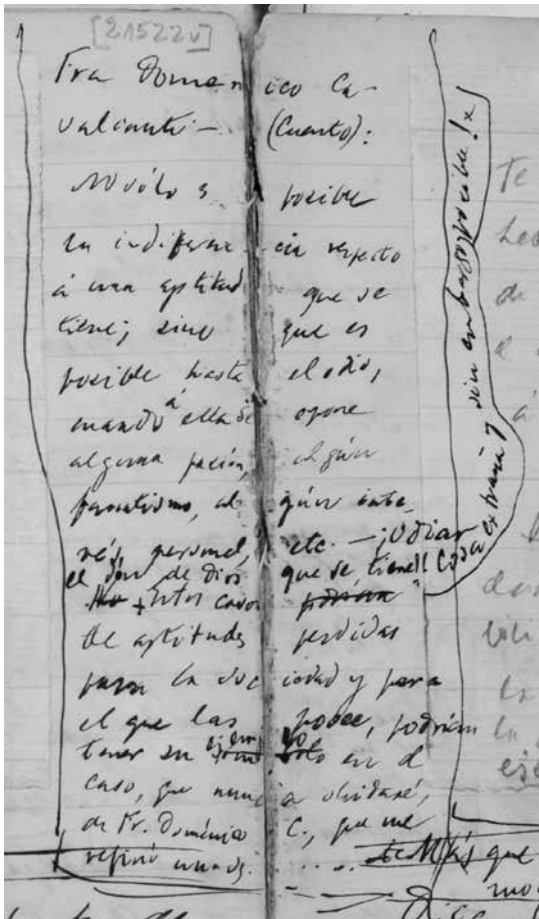 [21522v]
Fra Domenico Ca-
valcanti — (Cuento):
No sólo es posible
la indiferencia respecto
á una aptitud que se
tiene; sino que es
posible hasta el odio,
cuando á ella se opone
alguna pasión, algún
fanatismo, algún inte-
rés personal, etc. — ¡Odiar
el dón de Dios que se tiene!! Cosa extraña y sin embargo posible!x
+ Estos casos podrían
de aptitudes perdidas
para la sociedad y para
el que las posee, podrían
tener su ejemplo en el
caso, que nunca olvidaré,
de Fr. Doménico C., que me
refirió unas . . . . .
Más que
Te
de
á
la